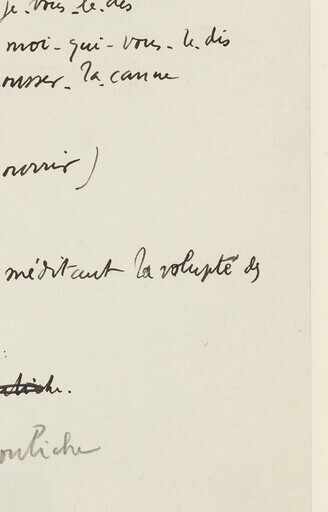 je-vous-le-dis
moi-qui-vous-le-dis
ousser-la-canne
ourrir)
méditant la volupté de